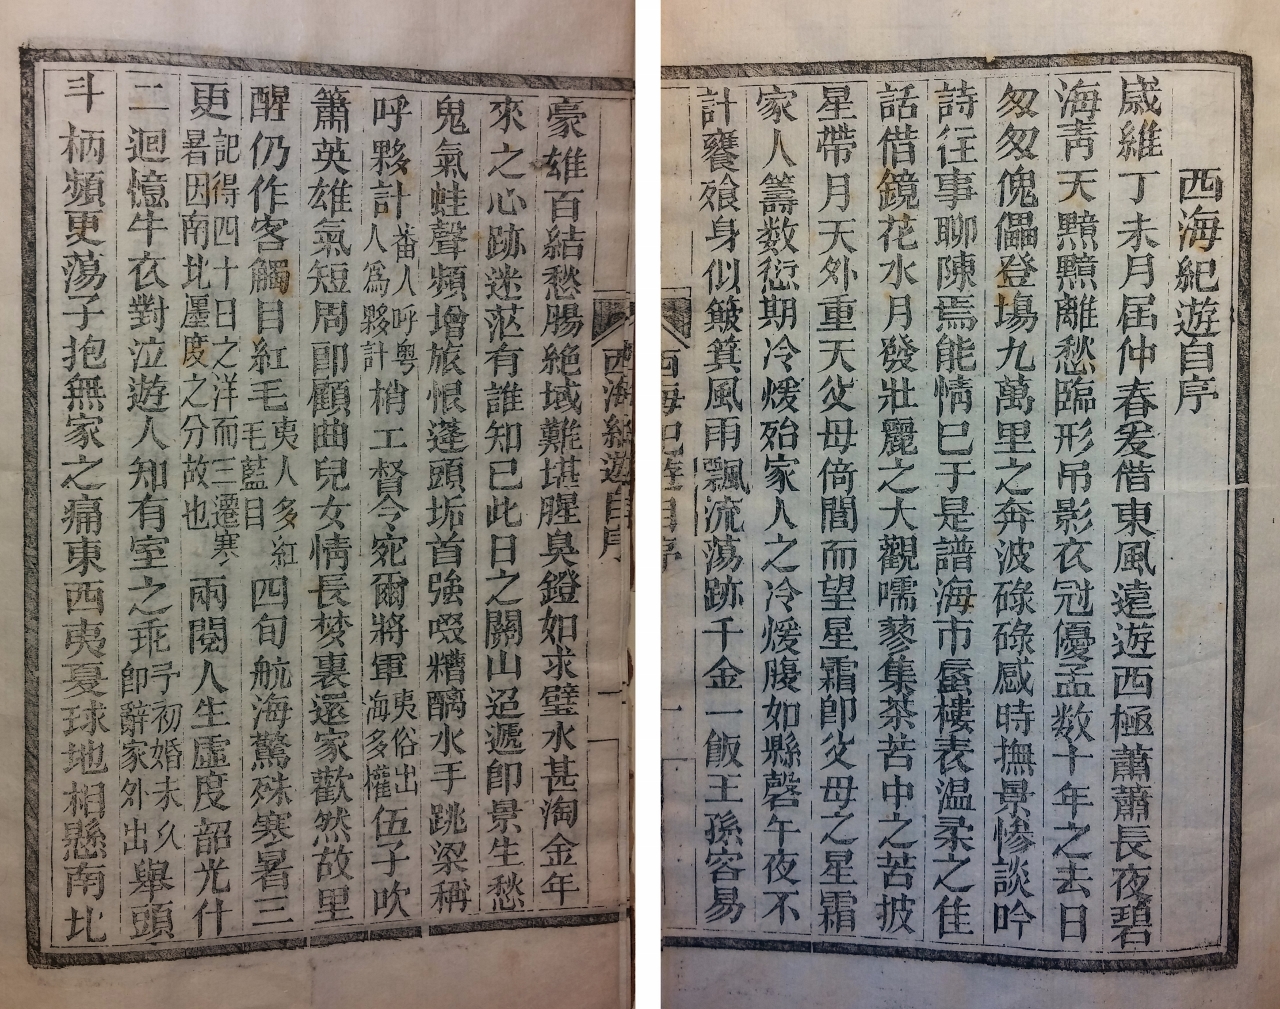 西海紀遊自序
歲維丁未月屆仲春爰借東風遠遊西極蕭蕭長夜碧
海靑天黯黯離愁臨形吊影衣冠優孟数十年之去日
匆匆傀儡登塲九萬里之奔波碌碌感時撫景慘談吟
詩往事聊陳焉能情已于是譜海市蜃樓表温柔之佳
話借鏡花水月發壯麗之大觀嚅蓼集荼苦中之苦披
星帶月天外重天父母倚閭而望星霜卽父母之星霜
家人籌数愆期冷煖殆家人之冷煖腹如縣磬午夜不
計饔飧身似簸箕風雨飄流蕩跡千金一飯王孫容易
西海紀遊自序
一
豪雄百結愁腸絕域難堪腥臭鐙如求璧水甚淘金年
來之心跡迷茫有誰知已此日之關山迢遞卽景生愁
鬼氣蛙聲頻增旅恨蓬頭垢首強啜糟醨水手跳梁稱
呼夥計番人呼粤人爲夥計梢工督令宛爾將軍夷俗出海多權伍子吹
簫英雄氣短周郎顧曲兒女情長梦裏還家歡然故里
醒仍作客觸目紅毛夷人多紅毛藍目四旬航海驚殊寒暑三
更記得四十日之洋而三遷寒暑因南北躔度之分故也兩閱人生虛度韶光什
二迴憶牛衣對泣遊人知有室之乖予初婚未久卽辭家外出舉頭
斗柄頻更蕩子抱無家之痛東西夷夏球地相懸南北